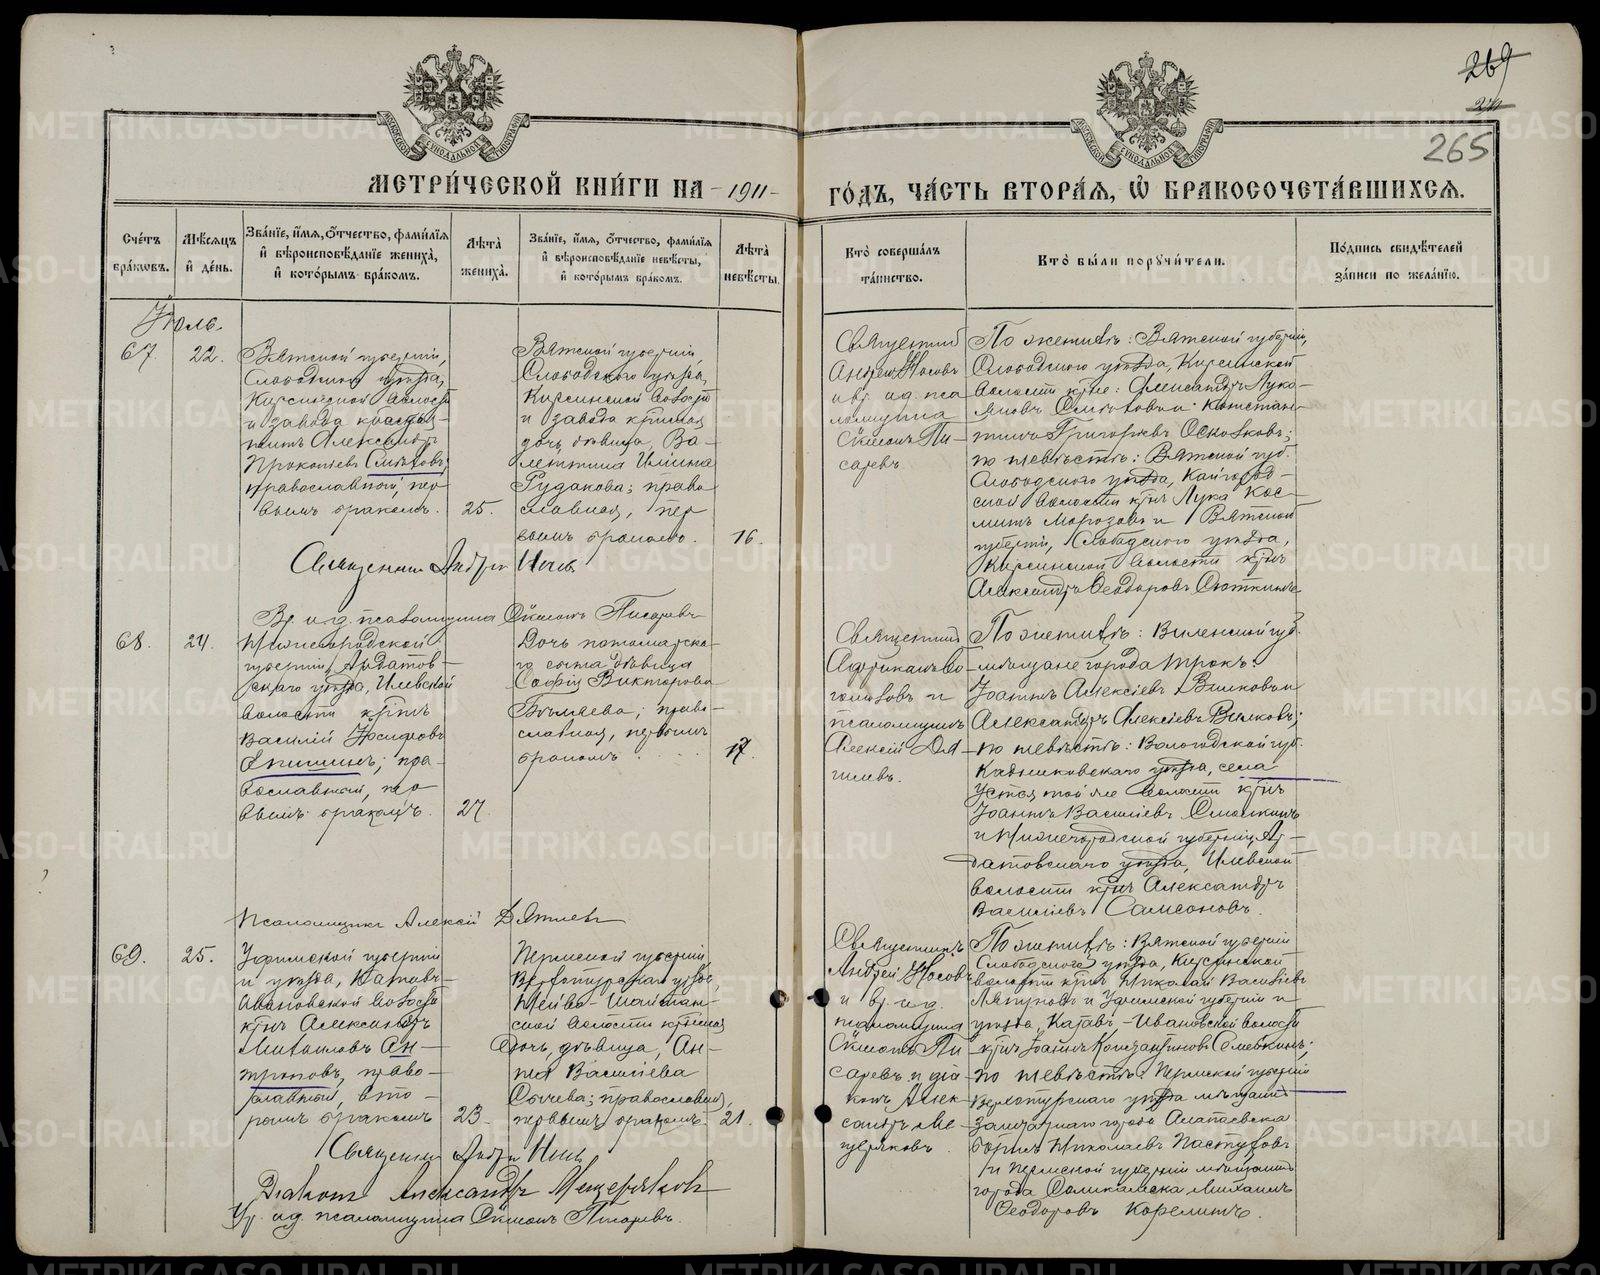 269
265
МЕТРИ́ЧЕСКОЙ КНИ́ГИ НА -1911-
ГО́ДЪ, ЧА́СТЬ ВТОРА́Я, Ѡ҆ БРАКОСОЧЕТА́ВШИХСЯ.
Сче́тъ бра́кωвъ.
Мѣ́сяцъ и҆ де́нь.
Зва́нїе, и҆́мя, ѻ҆́тчество, фами́лїя
и҆ вѣроисповѣ́данїе жениха̀,
и҆ кото́рымъ бра́комъ.
Лѣ́та̀ жениха̀.
Зва́нїе, и҆́мя, ѻ҆́тчество, фами́лїя
и҆ вѣроисповѣ́данїе невѣ́сты,
и҆ кото́рымъ бра́комъ.
Лѣ́та̀ невѣ́сты.
Кто̀ соверша́лъ
та́инство.
Кто̀ бы́ли порꙋчи́тели.
По́дпись свидѣ́телей
за́писи по жела́нїю.
Іюль.
67.
22.
Вятской губерніи,
Слободского уѣзда,
Кирсинской волости
и завода крестья-
нинъ Александръ
Прокопіевъ
православный, пер
вымъ бракомъ.
25.
Вятской губерніи
Слободского уѣзда,
Кирсинской волости
и завода крестьян
дочь дѣвица, Ва-
лентина Ильина
Рудакова; право
славная, пер
вымъ бракомъ.
16.
Священникъ
Андрей Носовъ
и вр. и.д. пса
ломщика
Пи-
саревъ.
По женихѣ: Вятской губерніи,
Слободского уѣзда, Кирсинской
волости крне: Александръ Луко-
яновъ и Констан-
тинъ Григорьевъ Осколковъ;
по невѣстѣ: Вятской губ.
Слободского уѣзда, Кайгород-
ской волости крнъ Лука Кос-
минъ Морозовъ и Вятской
губерніи, Слободского уѣзда,
Кирсинской волости крнъ
Александръ Ѳеодоровъ
Священникъ Андрей Носовъ
Вр. и.д. псаломщика Писаревъ
68.
24.
Нижегородской
губерніи, Ардатов-
скаго уѣзда, Илевской
волости крнъ
Василій
православный, пер
вымъ бракомъ.
27.
Дочь
дѣвица
Софія Викторова
Бѣляева; право-
славная, первымъ
бракомъ.
17.
Священникъ
и
псаломщикъ
Алексій Дя-
тлевъ.
По женихѣ: Виленской губ.
мѣщане города Трокъ:
Іоаннъ Алексіевъ Вилковъ и
Александръ Алексіевъ Вилковъ;
по невѣстѣ: Вологодской губ.
Кадниковскаго уѣзда, села
Устья той же волости крнъ
Іоаннъ Василіевъ
и Нижегородской губерніи, Ар-
датовскаго уѣзда, Илевской
волости крнъ Александръ
Василіевъ Самсоновъ.
Псаломщикъ Алексій Дятлевъ
69.
25.
Уфимской губерніи
и уѣзда, Катавъ-
Ивановской волости
крнъ Александръ
Михаиловъ Ан-
троповъ, право-
славный, вто-
рымъ бракомъ
23.
Пермской губерніи
Верхотурскаго уѣзда,
Нейво-Шайтан-
ской волости крестьян
дочь, дѣвица, Ан-
на Василіева
Сычева; православная,
первымъ бракомъ.
21.
Священникъ
Андрей Носовъ
и вр. и.д.
псаломщика
Пи
саревъ и діа
конъ Алек
сандръ Ме-
щеряковъ.
По женихѣ: Вятской губерніи
Слободского уѣзда, Кирсинской
волости крнъ Николай Василіевъ
Лягуновъ и Уфимской губерніи и
уѣзда, Катавъ-Ивановской волости
крнъ Іоаннъ Константиновъ
по невѣстѣ: Пермской губерніи
Верхотурскаго уѣзда мѣщанинъ
заштатнаго города Алапаевска
Борисъ Николаевъ Пастуховъ
и Пермской губерніи мѣщанинъ
города Соликамска Михаилъ
Ѳеодоровъ Корелинъ.
Священникъ Андрей Носовъ
Діаконъ Александръ Мещеряковъ
Вр. и.д. псаломщика Писаревъ.
METRIKI.GASO-URAL.RU